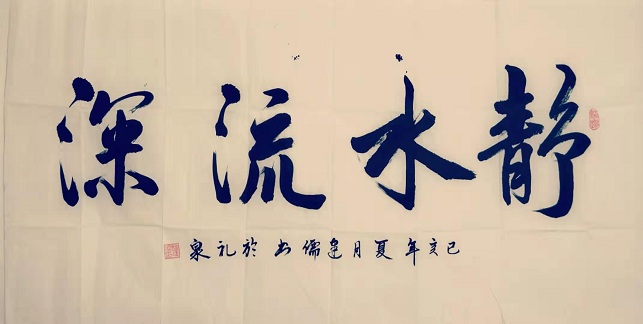 静水流深
己亥年夏月建儒书於礼泉